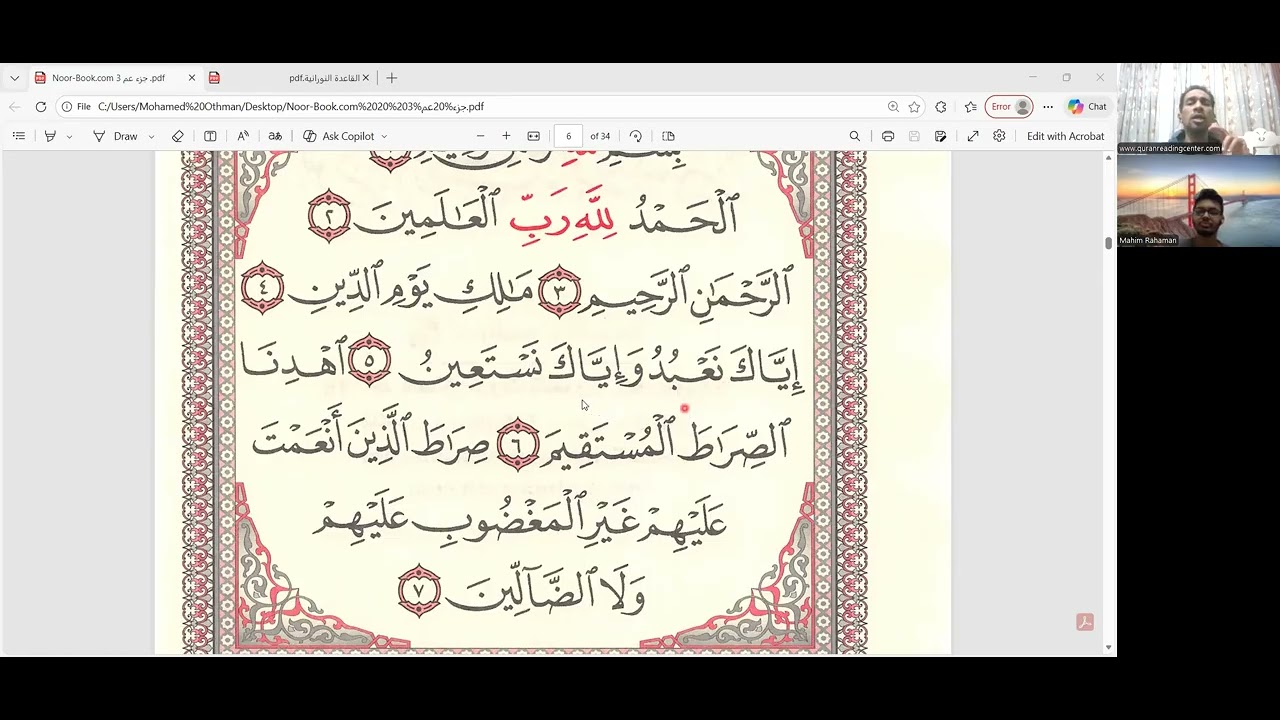 Noor-Book.com جزء عم 3 .pdf
القاعدة النورانية.pdf
File C:/Users/Mohamed%20Othman/Desktop/Noor-Book.com%2020%203%جزء%20عم.pdf
Error
Chat
Draw
Ask Copilot
6 of 34
Edit with Acrobat
ٱلْحَمْدُ لِلَّهِ رَبِّ ٱلْعَـٰلَمِينَ ٢
ٱلرَّحْمَـٰنِ ٱلرَّحِيمِ ٣ مَـٰلِكِ يَوْمِ ٱلدِّينِ ٤
إِيَّاكَ نَعْبُدُ وَإِيَّاكَ نَسْتَعِينُ ٥ ٱهْدِنَا
ٱلصِّرَٰطَ ٱلْمُسْتَقِيمَ ٦ صِرَٰطَ ٱلَّذِينَ أَنْعَمْتَ
عَلَيْهِمْ غَيْرِ ٱلْمَغْضُوبِ عَلَيْهِمْ
وَلَا ٱلضَّآلِّينَ ٧
www.quranreadingcenter.com
Mahim Rahaman